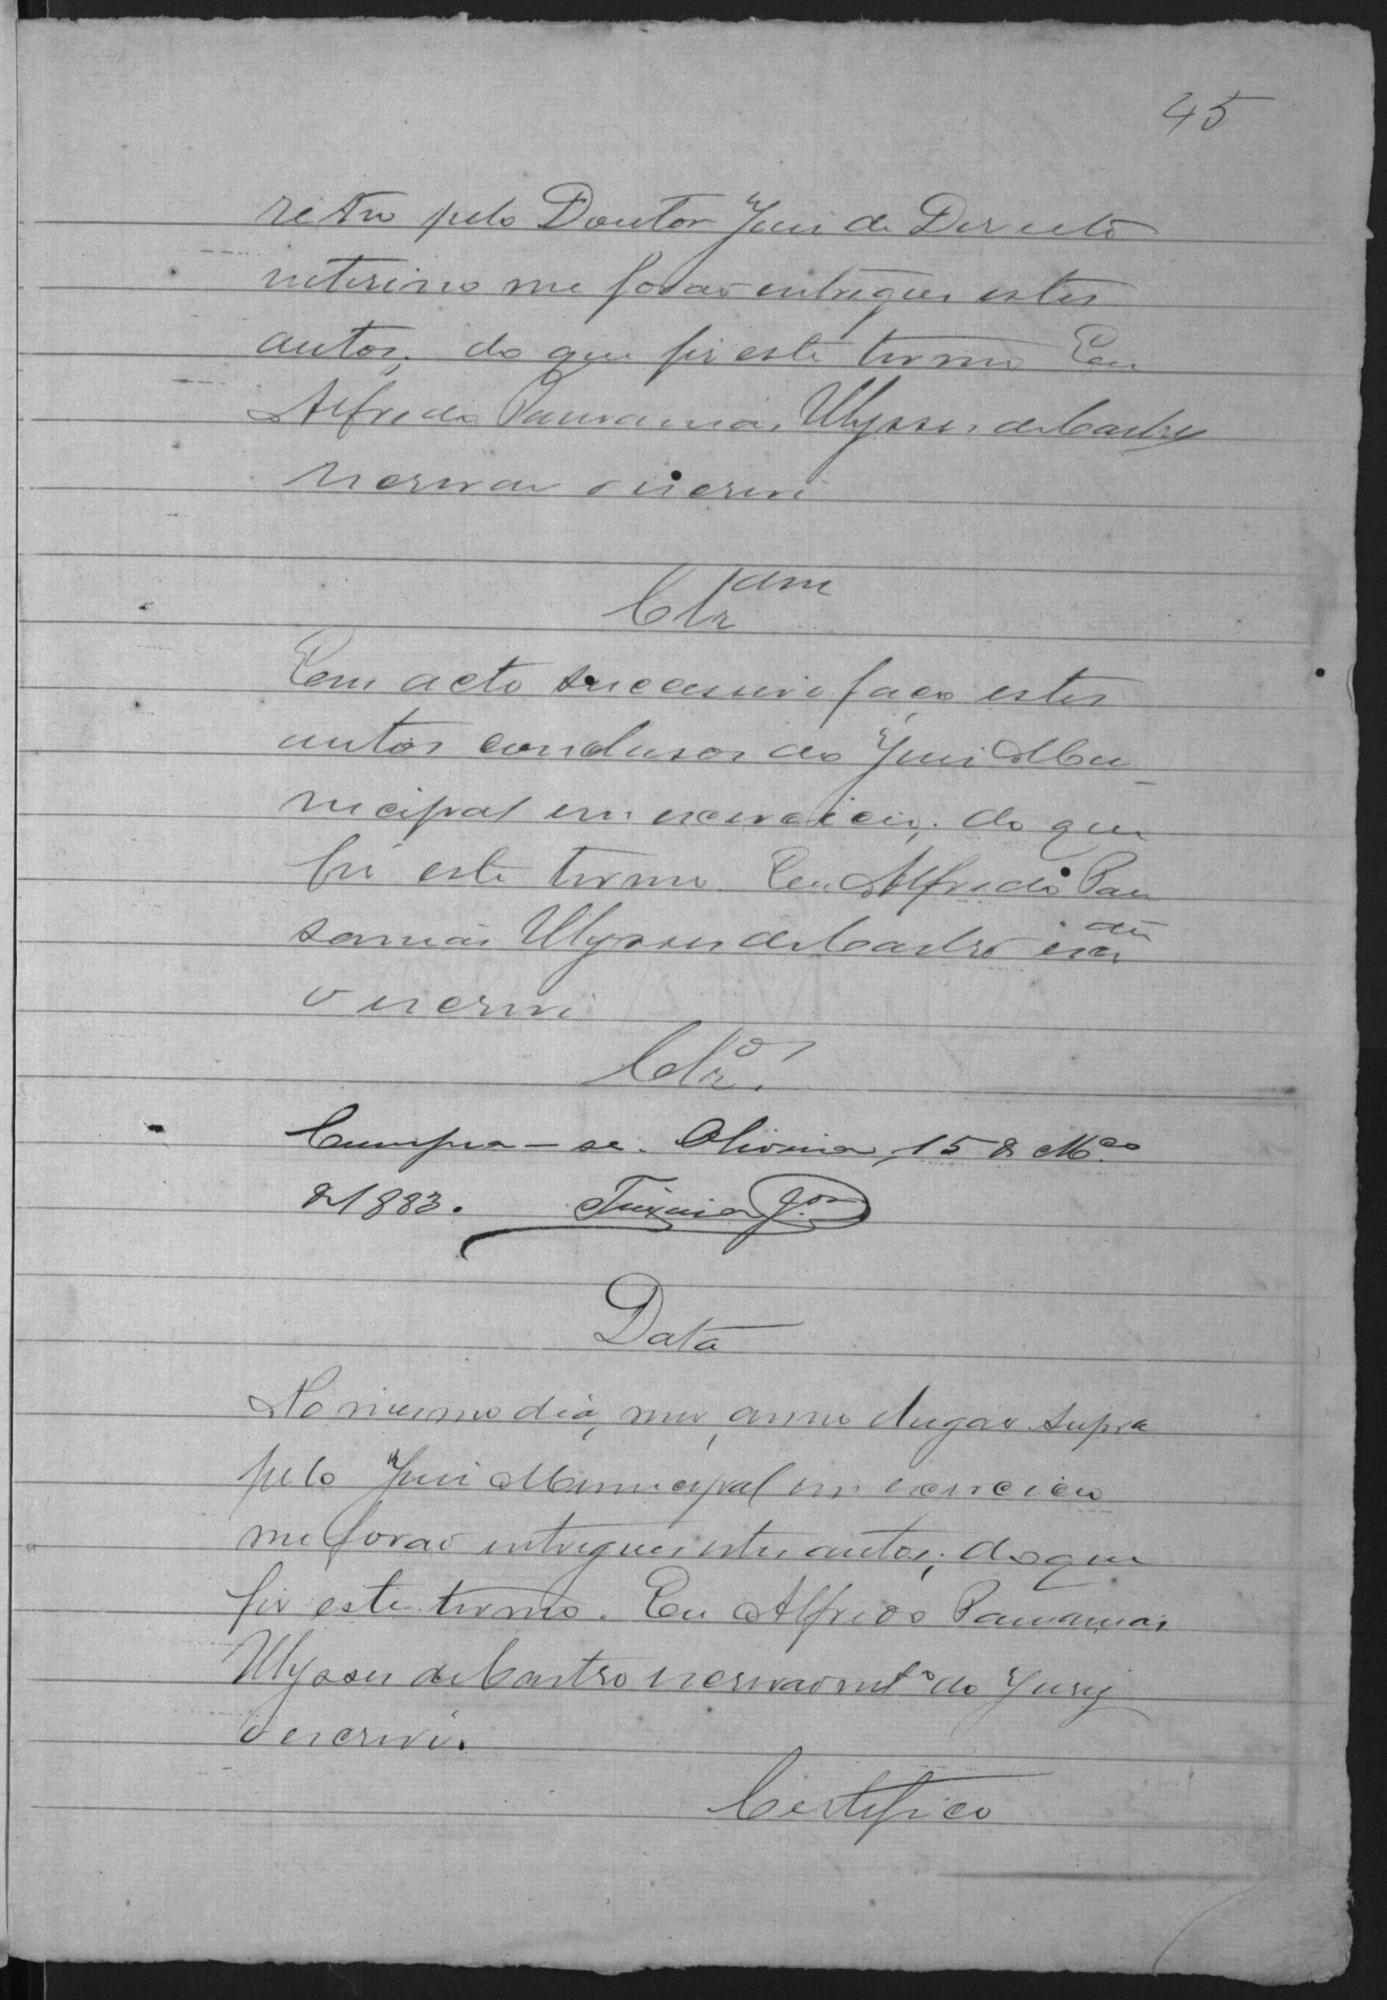 45
retro pelo Doutor Juiz de Direito
interino me forão entregues estes
autos, do que fiz este termo Eu
Alfredo Pausanias Ulysses de Castro
escrivão o escrevi
Clz am
Em acto successivo faço estes
autos conclusos ao Juiz Mu-
nicipal em exercicio, do que
fiz este termo. Eu Alfredo Pau
sanias Ulysses de Castro escr ão
o escrevi
Clz o.
Cumpra-se. Oliveira, 15 de Mço
de 1883. Teixeira Jor
Data
No mesmo dia, mez, anno e lugar supra
pelo Juiz Municipal em exercicio
me forão entregues estes autos, do que
fiz este termo. Eu Alfredo Pausanias
Ulysses de Castro escrivão intº do Jury
o escrevi.
Certifico